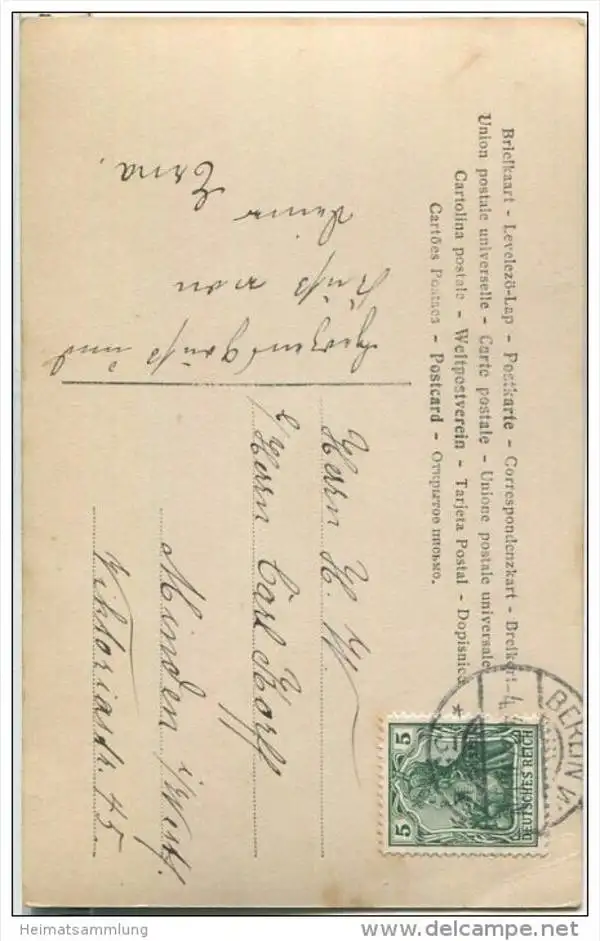 Briefkaart - Levelezö-Lap - Postkarte - Correspondenzkart - Brefkort
Union postale universelle - Carte postale - Unione postale universale
Cartolina postale - Weltpostverein - Tarjeta Postal - Dopisnice
Cartões Postaes - Postcard - Открытое письмо.
BERLIN 4.
DEUTSCHES REICH
5 5
Herzensgrüße und
Küsse von
Deiner
Erna.
Herrn H. W
Herrn Carl Korff
Minden i/Westf.
Viktoriastr. 45
Heimatsammlung
www.delcampe.net